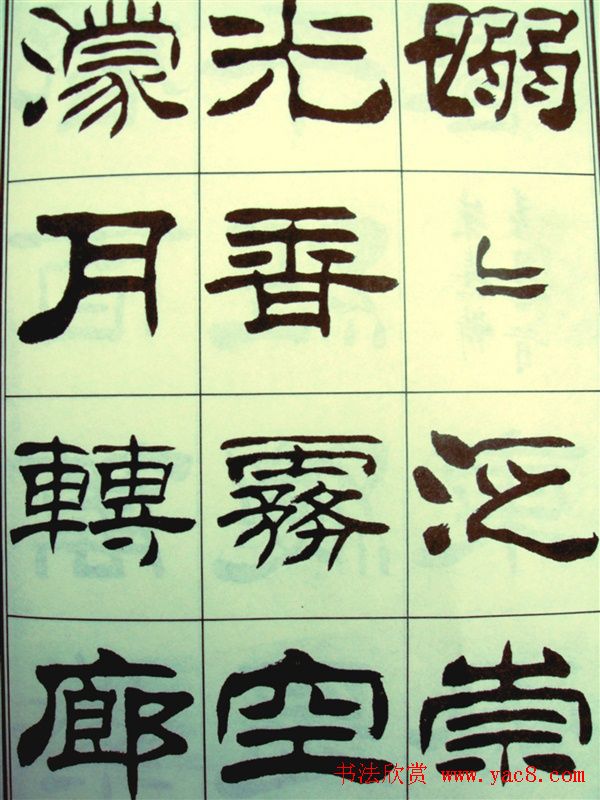 嫋〻泛崇
光香霧空
濛月轉廊
书法欣赏 www.yac8.com